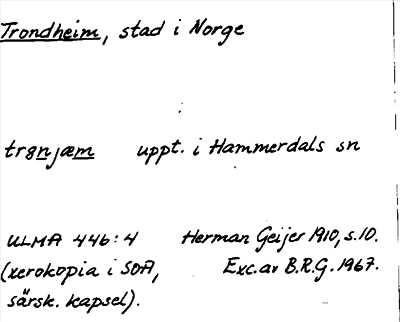 Trondheim, stad i Norge
trønjæm uppt. i Hammerdals sn
ULMA 446:4 Herman Geijer 1910, s. 10.
(xerokopia i SOA, Exc. av B.R.G. 1967.
särsk. kapsel).